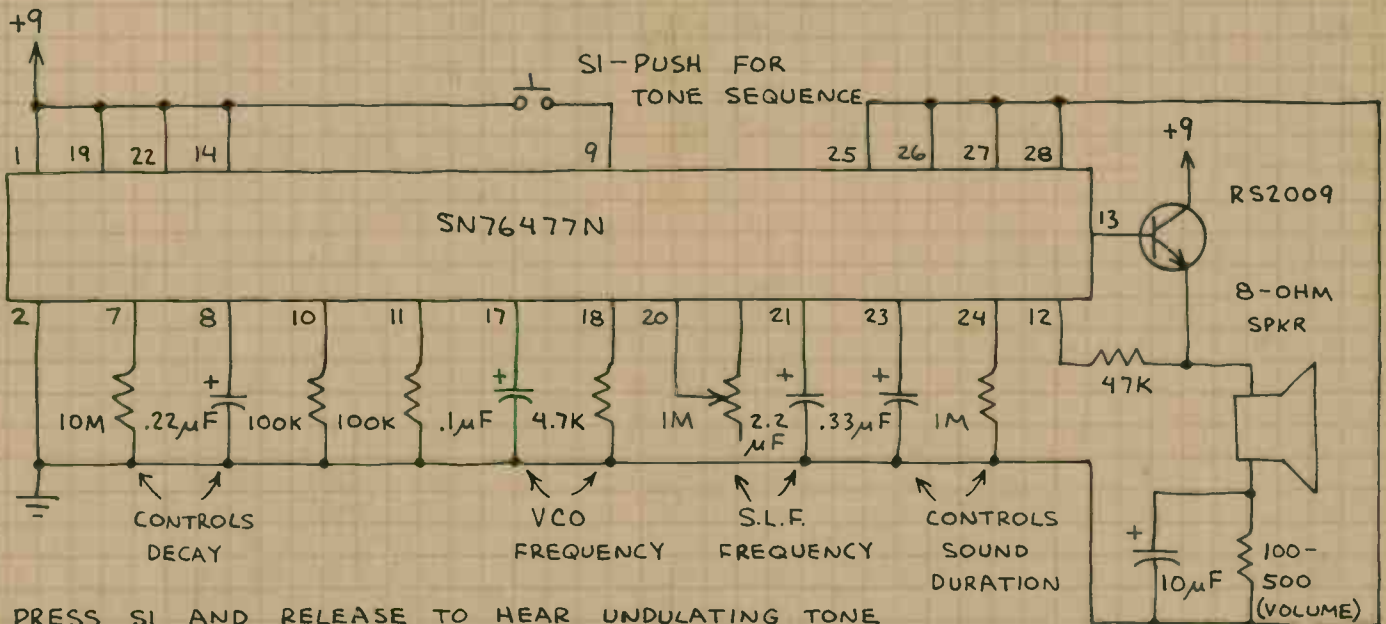 +9
S1-PUSH FOR
TONE SEQUENCE
+9
1 19 22 14 9 25 26 27 28
RS2009
SN76477N
13
8-OHM
SPKR
2 7 8 10 11 17 18 20 21 23 24 12
+ + + +
47K
10M .22µF 100K 100K .1µF 4.7K 1M 2.2 µF .33µF 1M
CONTROLS
DECAY
VCO
FREQUENCY
S.L.F.
FREQUENCY
CONTROLS
SOUND
DURATION
+
10µF
100-
500
(VOLUME)
PRESS S1 AND RELEASE TO HEAR UNDULATING TONE